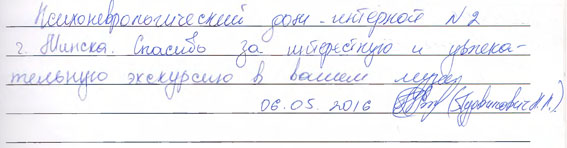 Психоневрологический дом-интернат N2
г. Минска. Спасибо за интересную и увлека-
тельную экскурсию в вашем музее
06.05.2016